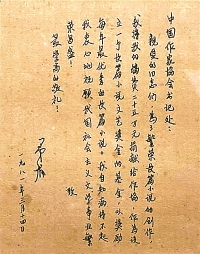 中国作家協会书记处：
親爱的同志们，为了繁荣長篇小说的创作，
我将我的稿费二十五万元捐献给作协，作为设
立一个長篇小说文艺奖金的基金，以奖励
每年最优秀的長篇小说。我自知病将不起，
我衷心地祝愿我国社会主义文学事业繁
荣昌盛！
致
最崇高的敬礼！
茅盾
一九八一年三月十四日